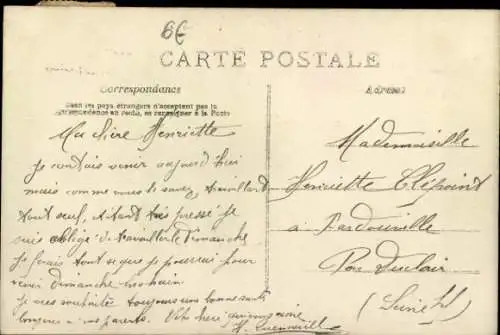 8€
CARTE POSTALE
Correspondance
Adresse
Tous les pays étrangers n'acceptent pas la
correspondance au recto, se renseigner à la Poste
Ma chère Henriette
Je comtais venir aujourd'hui
mais comme vous le savez travaillant
tout seul, étant très pressé je
suis obligé de travailler le Dimanche
je ferais tout ce que je pourrai pour
venir Dimanche prochain
je vous souhaite toujours une bonne santé
bonjour à vos parents. Votre qui vous aime
H.
Mademoiselle
Henriette Clépoint
à
Par Duclair
(Seine Inf)